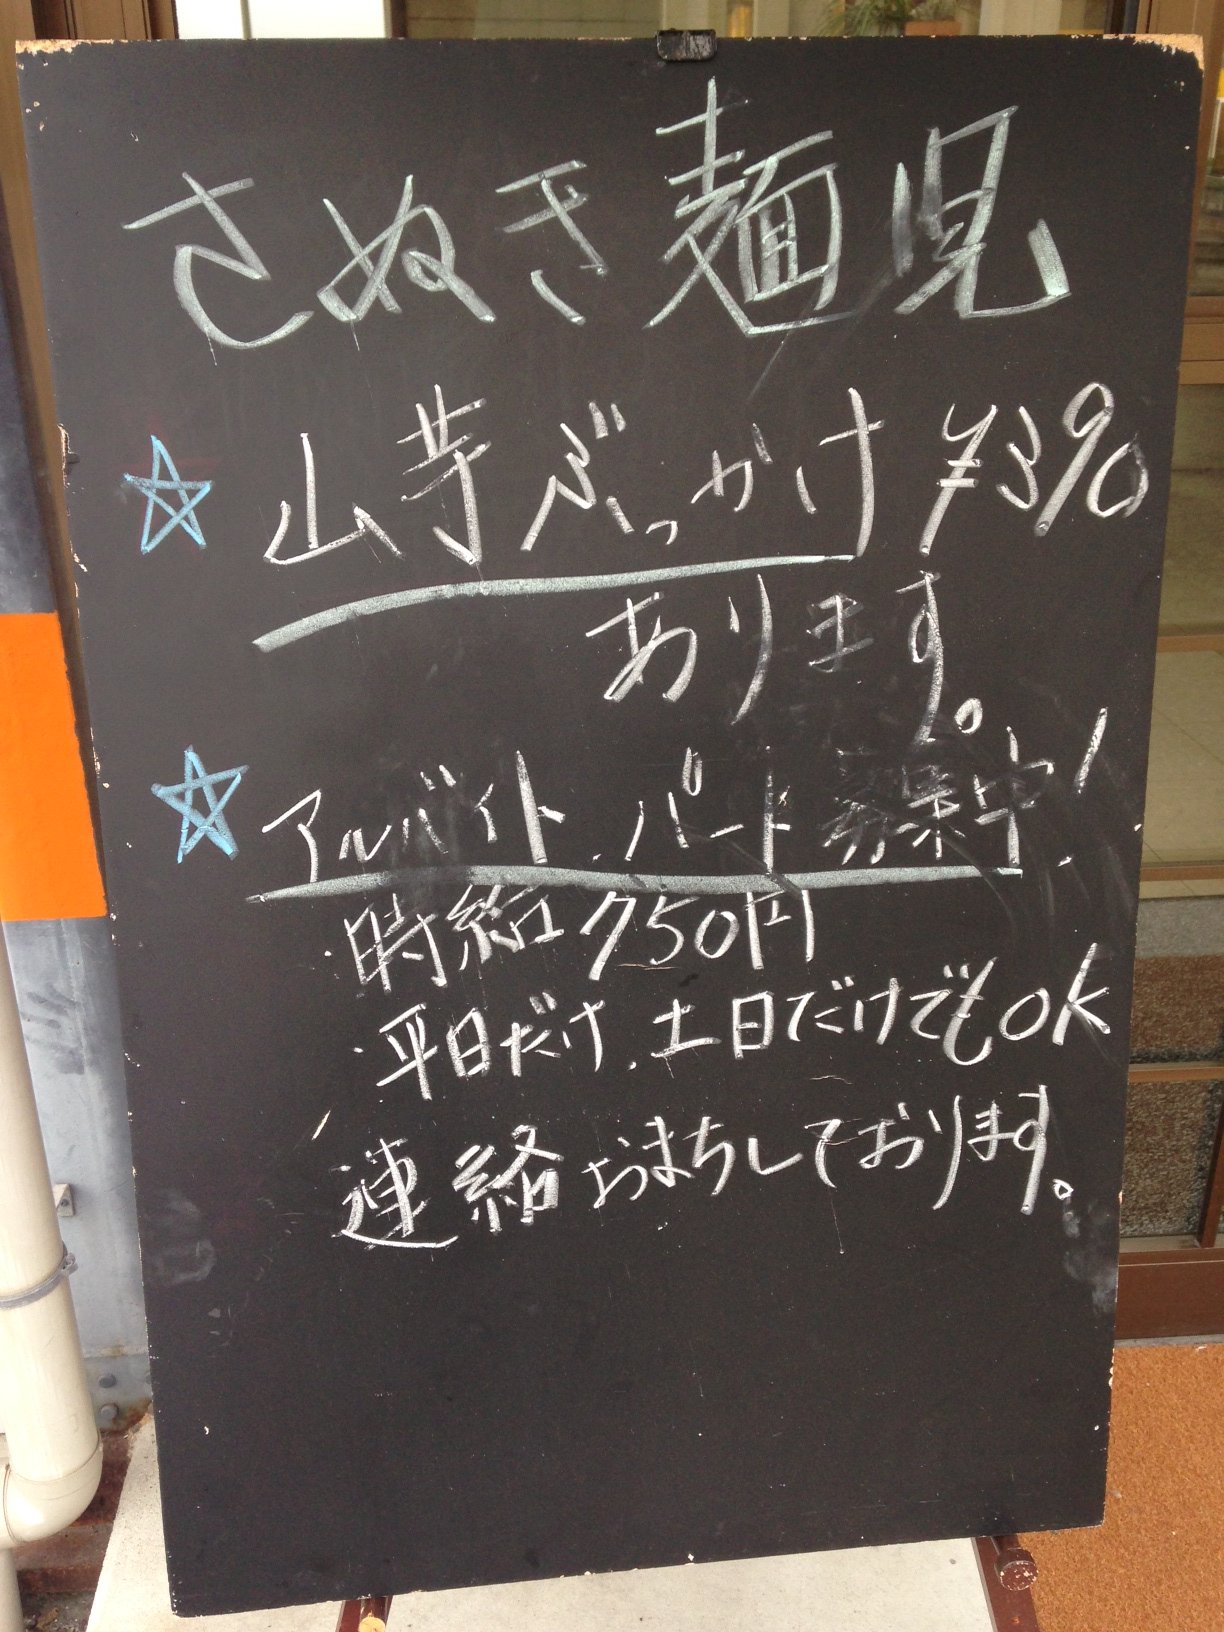 さぬき麺児
☆ 山芋ぶっかけ ¥390
あります。
☆ アルバイト.パート募集中!
・時給750円
・平日だけ.土日だけでもOK
連絡おまちしております。